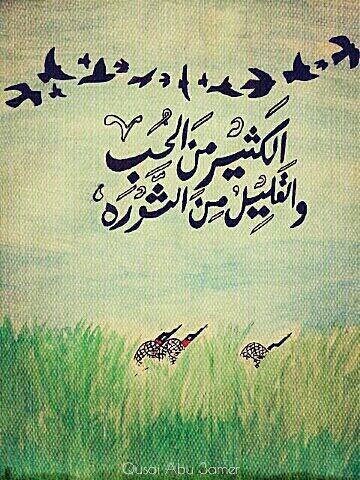 الكَثيرُ مِنَ الحُب
والقَلِيلِ مِنَ الثَّوْرَه
Qusai Abu Samer